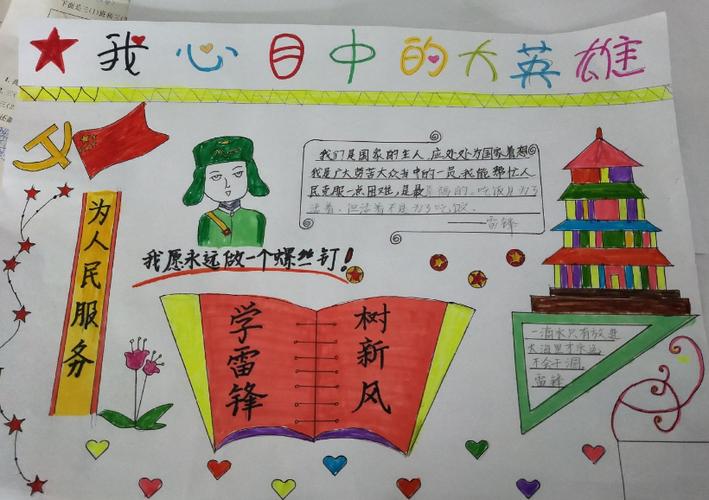 下面是三(1)班
我心目中的大英雄
为人民服务
我们是国家的主人,应处处为国家着想
我是广大劳苦大众当中的一员,我能帮忙人
民克服一点困难,是最幸福的。吃饭是为了
活着,但活着不是为了吃饭。
雷锋
我愿永远做一个螺丝钉!
学雷锋
树新风
一滴水只有放进
大海里才永远
不会干涸。
雷锋